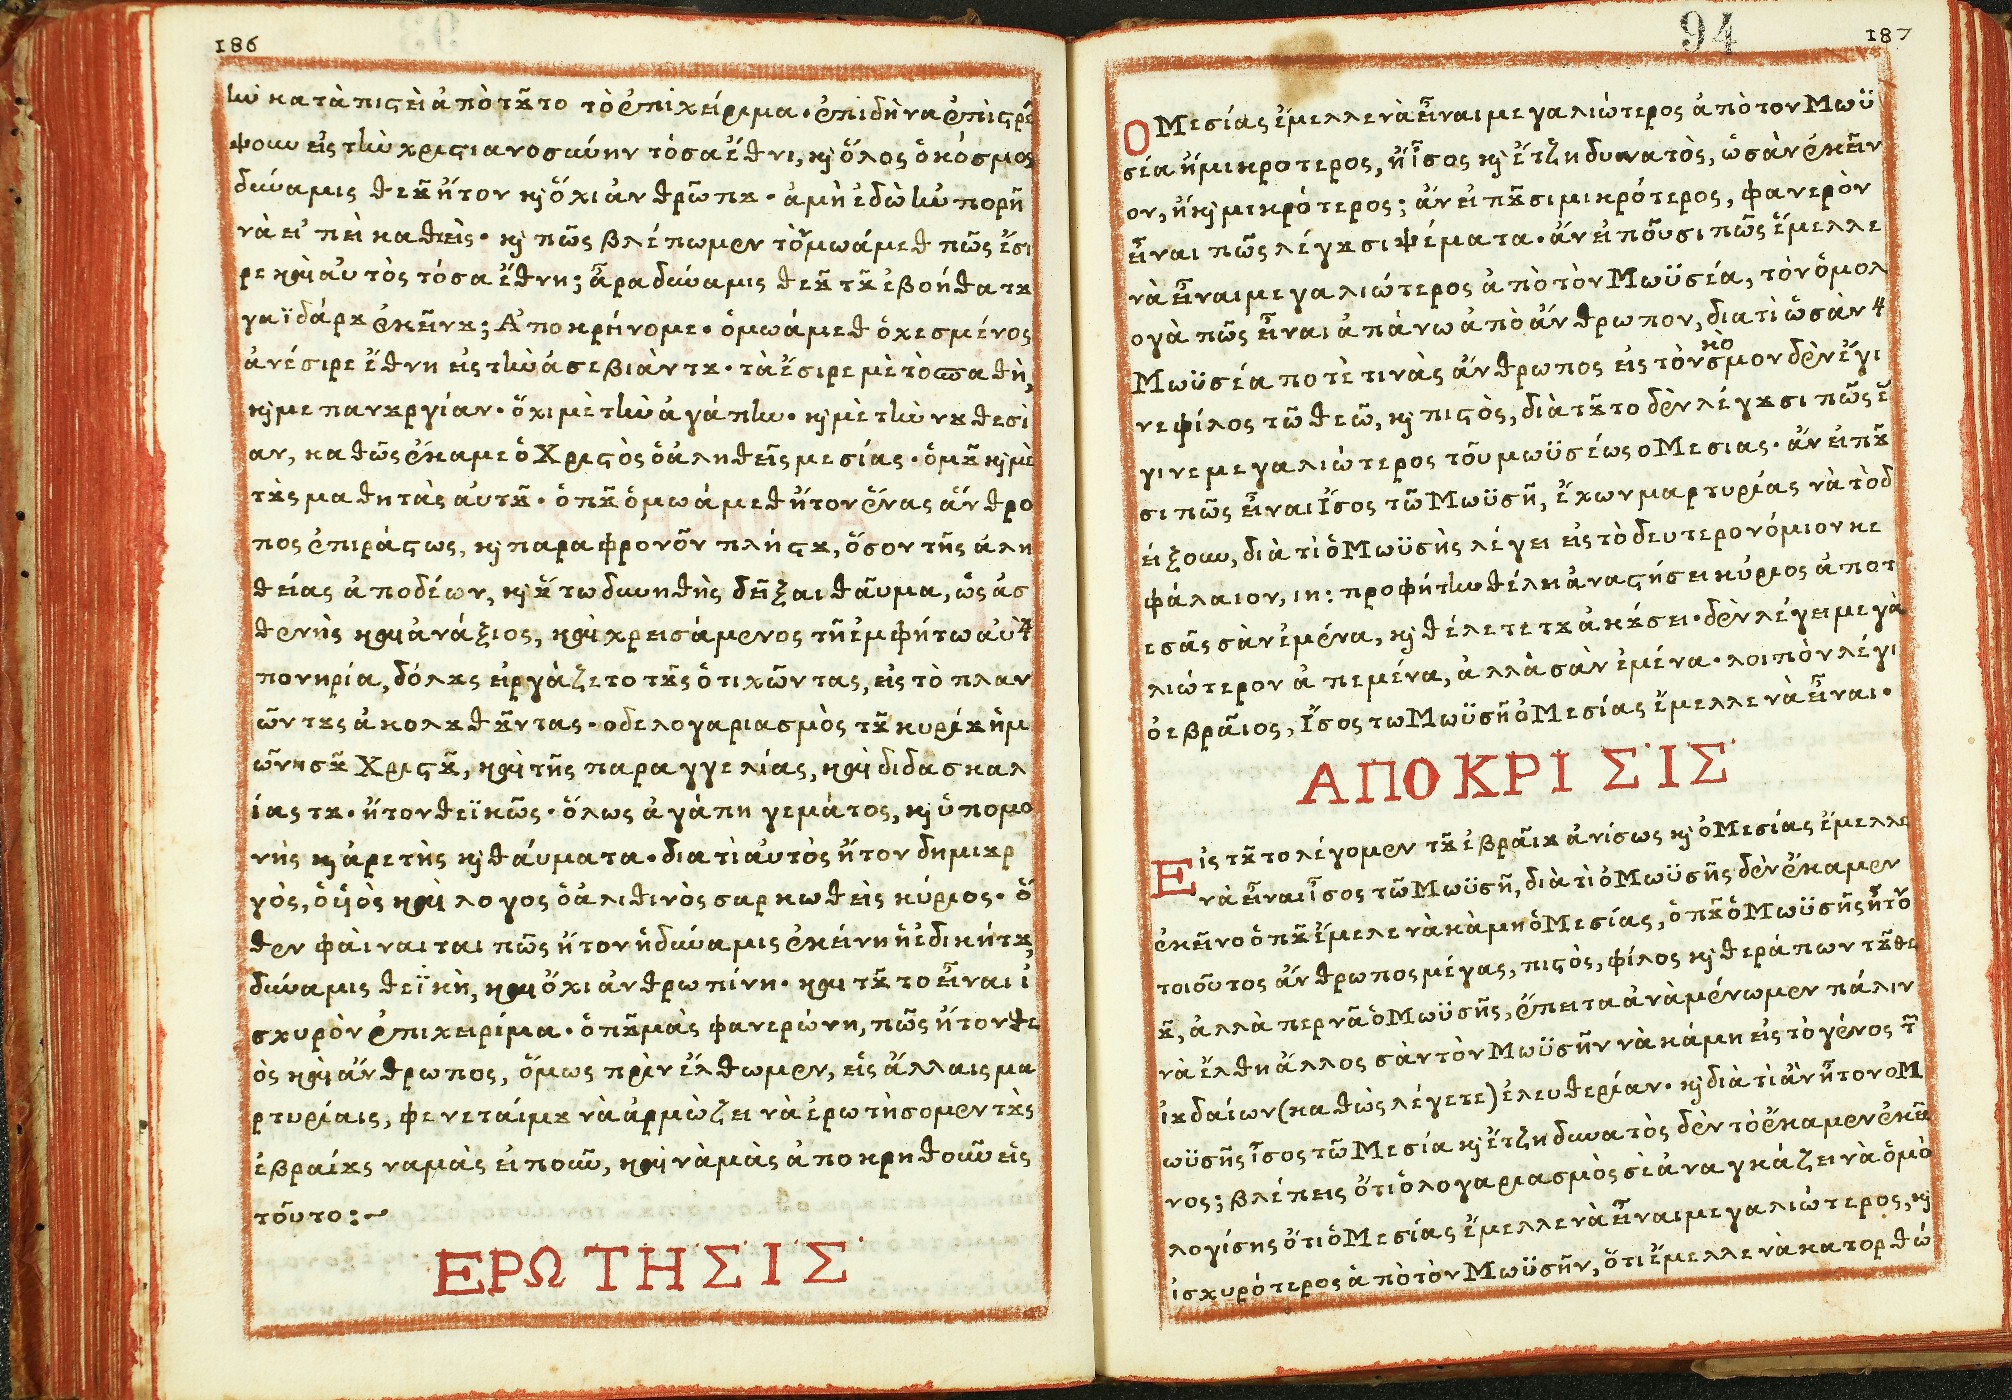 186
ὴν κατὰ πίστει ἀπὸ τοῦτο τὸ ἐπιχείρημα· ἐπιδὴ να ἐπιστρέ
ψουν εἰς τὴν χριστιανοσύνην τόσα ἔθνι, κὶ ὅλος ὁ κόσμος
δύναμις θεοῦ ἤτον κὶ ὄχι ἀνθρώπου· ἀμὴ ἐδὼ ἠμπορῆ
νὰ εἰπεὶ καθεὶς· κὶ πῶς βλέπωμεν τὸν μωάμεθ πῶς ἔσι
ρε καὶ αὐτὸς τόσα ἔθνη; ἆρα δύναμις θεοῦ τοῦ ἐβοήθα του
γαϊδάρου ἐκεῖνου; Αποκρήνομε· ὁ μωάμεθ ὁ χεσμένος
ἀνέσιρε ἔθνη εἰς τὴν ἀσεβιὰν του· τὰ ἔσιρε μὲ τὸ σπαθὴ,
κὶ με πανουργίαν· ὄχι μὲ τὴν ἀγάπην· κὶ μὲ τὴν νουθεσί
αν, καθῶς ἔκαμε ὁ Χριστὸς ὁ ἀληθεῖς μεσίας· ὁμοῦ κὶ μὲ
τοὺς μαθητὰς αὐτοῦ· ὁποῦ ὁ μωάμεθ ἤτον ἕνας ἄνθρο
πος ἐπιράστως, κὶ παραφρονοῦν πλήστου, ὅσον τῆς ἀλη
θείας ἀποδέων, κὶ οὕτω δυνηθὴς δεῖξαι θαῦμα, ὡς ἀσ
θενὴς καὶ ἀνάξιος, καὶ χρεισάμενος τῇ ἐμφήτω αὐτ
πονηρία, δόλους εἰργάζετο τοῦς ὁτιχῶντας, εἰς τὸ πλαν
ῶν τους ἀκολουθοῦντας· ο δε λογαριασμὸς τοῦ κυρίου ἡμ
ῶν ησοῦ Χριστοῦ, καὶ τῆς παραγγελίας, καὶ διδασκαλ
ίας του· ἤτον θεϊκῶς· ὅλως ἀγάπη γεμάτος, κὶ ὑπομο
νὴς κὶ ἀρετὴς κὶ θάυματα· διατὶ αὐτὸς ἤτον δημιουρ
γὸς, ὁ ὑιὸς καὶ λογος ὁ ἀλιθινὸς σαρκωθεὶς κύριος· ὅ
θεν φαὶναιται πῶς ἤτον ἡ δύναμις ἐκείνη ἡ ἐδικήτου,
δύναμις θεϊκὴ, καὶ ὄχι ἀνθρωπίνη· καὶ τοῦτο εἶναι ἰ
σχυρὸν ἐπιχειρίμα· ὁποῦ μὰς φανερώνη, πῶς ἤτον θε
ὸς καὶ ἄνθρωπος, ὅμως πρὶν ἔλθωμεν, εἰς ἄλλαις μα
ρτυρίαις, φενεταίμου νὰ ἀρμὼζει νὰ ἐρωτὴσομεν τοὺς
ἑβραίους ναμὰς εἰποῦν, καὶ νὰ μὰς ἀποκρηθοῦν εἰς
τοῦτο:~
ΕΡΩΤΗΣΙΣ
94
187
Ο Μεσίας ἔμελλε νὰ εἶναι μεγαλιώτερος ἀπὸ τον Μωϋ
σέα ἤ μικροτερος, ἤ ἶσος κὶ ἔτζη δυνατὸς, ὡσὰν ἐκεῖν
ον, ἤ κὶ μικρότερος; ἄν εἰποῦσι μικρότερος, φανερὸν
εἶναι πῶς λέγουσι ψέματα· ἄν εἰποῦσι πῶς ἔμελλε
νὰ εἶναι μεγαλιώτερος ἀπὸ τὸν Μωϋσέα, τὸν ὁμολ
ογὰ πῶς εἶναι ἀπάνω ἀπὸ ἄνθρωπον, διατὶ ὡσὰν τ
Μωϋσέα ποτὲ τινὰς ἄνθρωπος εἰς τὸν κόσμον δὲν ἔγι
νε φίλος τῶ θεῶ, κὶ πιστὸς, διὰ τοῦτο δὲν λέγουσι πῶς ἔ
γινε μεγαλιώτερος τοῦ μωϋσέως ο Μεσιας· ἄν εἰποῦ
σι πῶς εἶναι ἶσος τῶ Μωϋσῆ, ἔχων μαρτυρίας νὰ τὸ δ
είξουν, διὰ τὶ ὁ Μωϋσὴς λέγει εἰς τὸ δευτερονόμιον κε
φάλαιον, ιη: προφήτην θέλη ἀναστήσει κύριος ἀποτ
ε σᾶς σὰν ἐμένα, κὶ θέλετε του ἀκούσει· δὲν λέγει μεγα
λιώτερον ἀπεμένα, ἀλλὰ σὰν ἐμένα· λοιπὸν λέγι
ὁ εβραῖος, ἶσος τω Μωϋσῆ ὁ Μεσίας ἔμελλε νὰ εἶναι·
ΑΠΟΚΡΙΣΙΣ
Εἰς τοῦτο λέγομεν τοῦ ἑβραῖου ἀνίσως κὶ ὁ Μεσίας ἔμελλε
νὰ εἶναι ἶσος τῶ Μωϋσῆ, διὰ τὶ ὁ Μωϋσῆς δὲν ἔκαμεν
ἐκεῖνο ὁποῦ ἔμελε νὰ κὰμη ὁ Μεσίας, ὁποῦ ὁ Μωϋσῆς ἦτο
τοιοῦτος ἄνθρωπος μέγας, πιστὸς, φίλος κὶ θεράπων τοῦ θε
οῦ, ἀλλὰ περνᾶ ὁ Μωϋσῆς, ἔπειτα ἀνὰμένωμεν πάλιν
νὰ ἔλθη ἄλλος σὰν τὸν Μωϋσῆν νὰ κάμη εἰς τὸ γένος τ
ἰουδαίων (καθὼς λέγετε) ἐλευθερίαν· κὶ διὰ τὶ ἂν ἦτον ο Μ
ωϋσῆς ἶσος τῶ Μεσία κὶ ἔτζη δυνατὸς δὲν τὸ ἔκαμεν ἐκεῖ
νος; βλέπεις ὅτι ὁ λογαριασμὸς σὲ ἀναγκάζει νὰ ὁμὸ
λογίσης ὅτι ὁ Μεσίας ἔμελλε νὰ εἶναι μεγαλιώτερος, κὶ
ἰσχυρότερος ἀπὸ τὸν Μωϋσῆν, ὅτι ἔμελλε νὰ κατορθώ